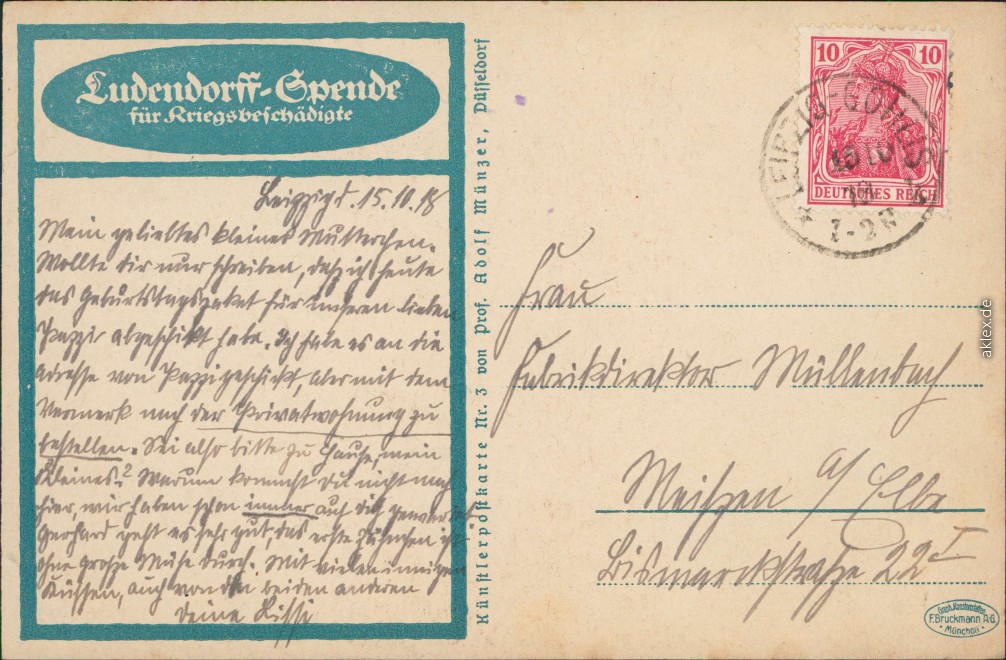 Ludendorff-Spende
für Kriegsbeschädigte
Leipzig d. 15.10.18
Mein geliebtes kleines Mutterchen.
Wollte dir nur schreiben, daß ich heute
das Geburtstagspaket für unseren lieben
Pappi abgeschikt habe. Ich habe es an die
Adresse von Pappi geschikt, aber mit dem
Vermerk nach der Privatwohnung zu
bestellen. Sei also bitte zu Hause, mein
Kleines? Warum kommst Du nicht nach
hier, wir haben schon immer auf dich gewartet
Gerhard geht es sehr gut, das erste Zähnchen ist
ohne große Mühe durch. Mit vielen innigen
Küssen, auch von den beiden anderen
Deine Lissi
Künstlerpostkarte Nr. 3 von Prof. Adolf Münzer, Düsseldorf
10 10
DEUTSCHES REICH
LEIPZIG-GOHLIS
15 10
18
1-2N
Frau
Fabrikdirektor Müllenbach
Meißen a/ Elbe
Bismarckstraße 22 I
Graph. Kunstanstalten
F. Bruckmann A.G.
München
aklex.de